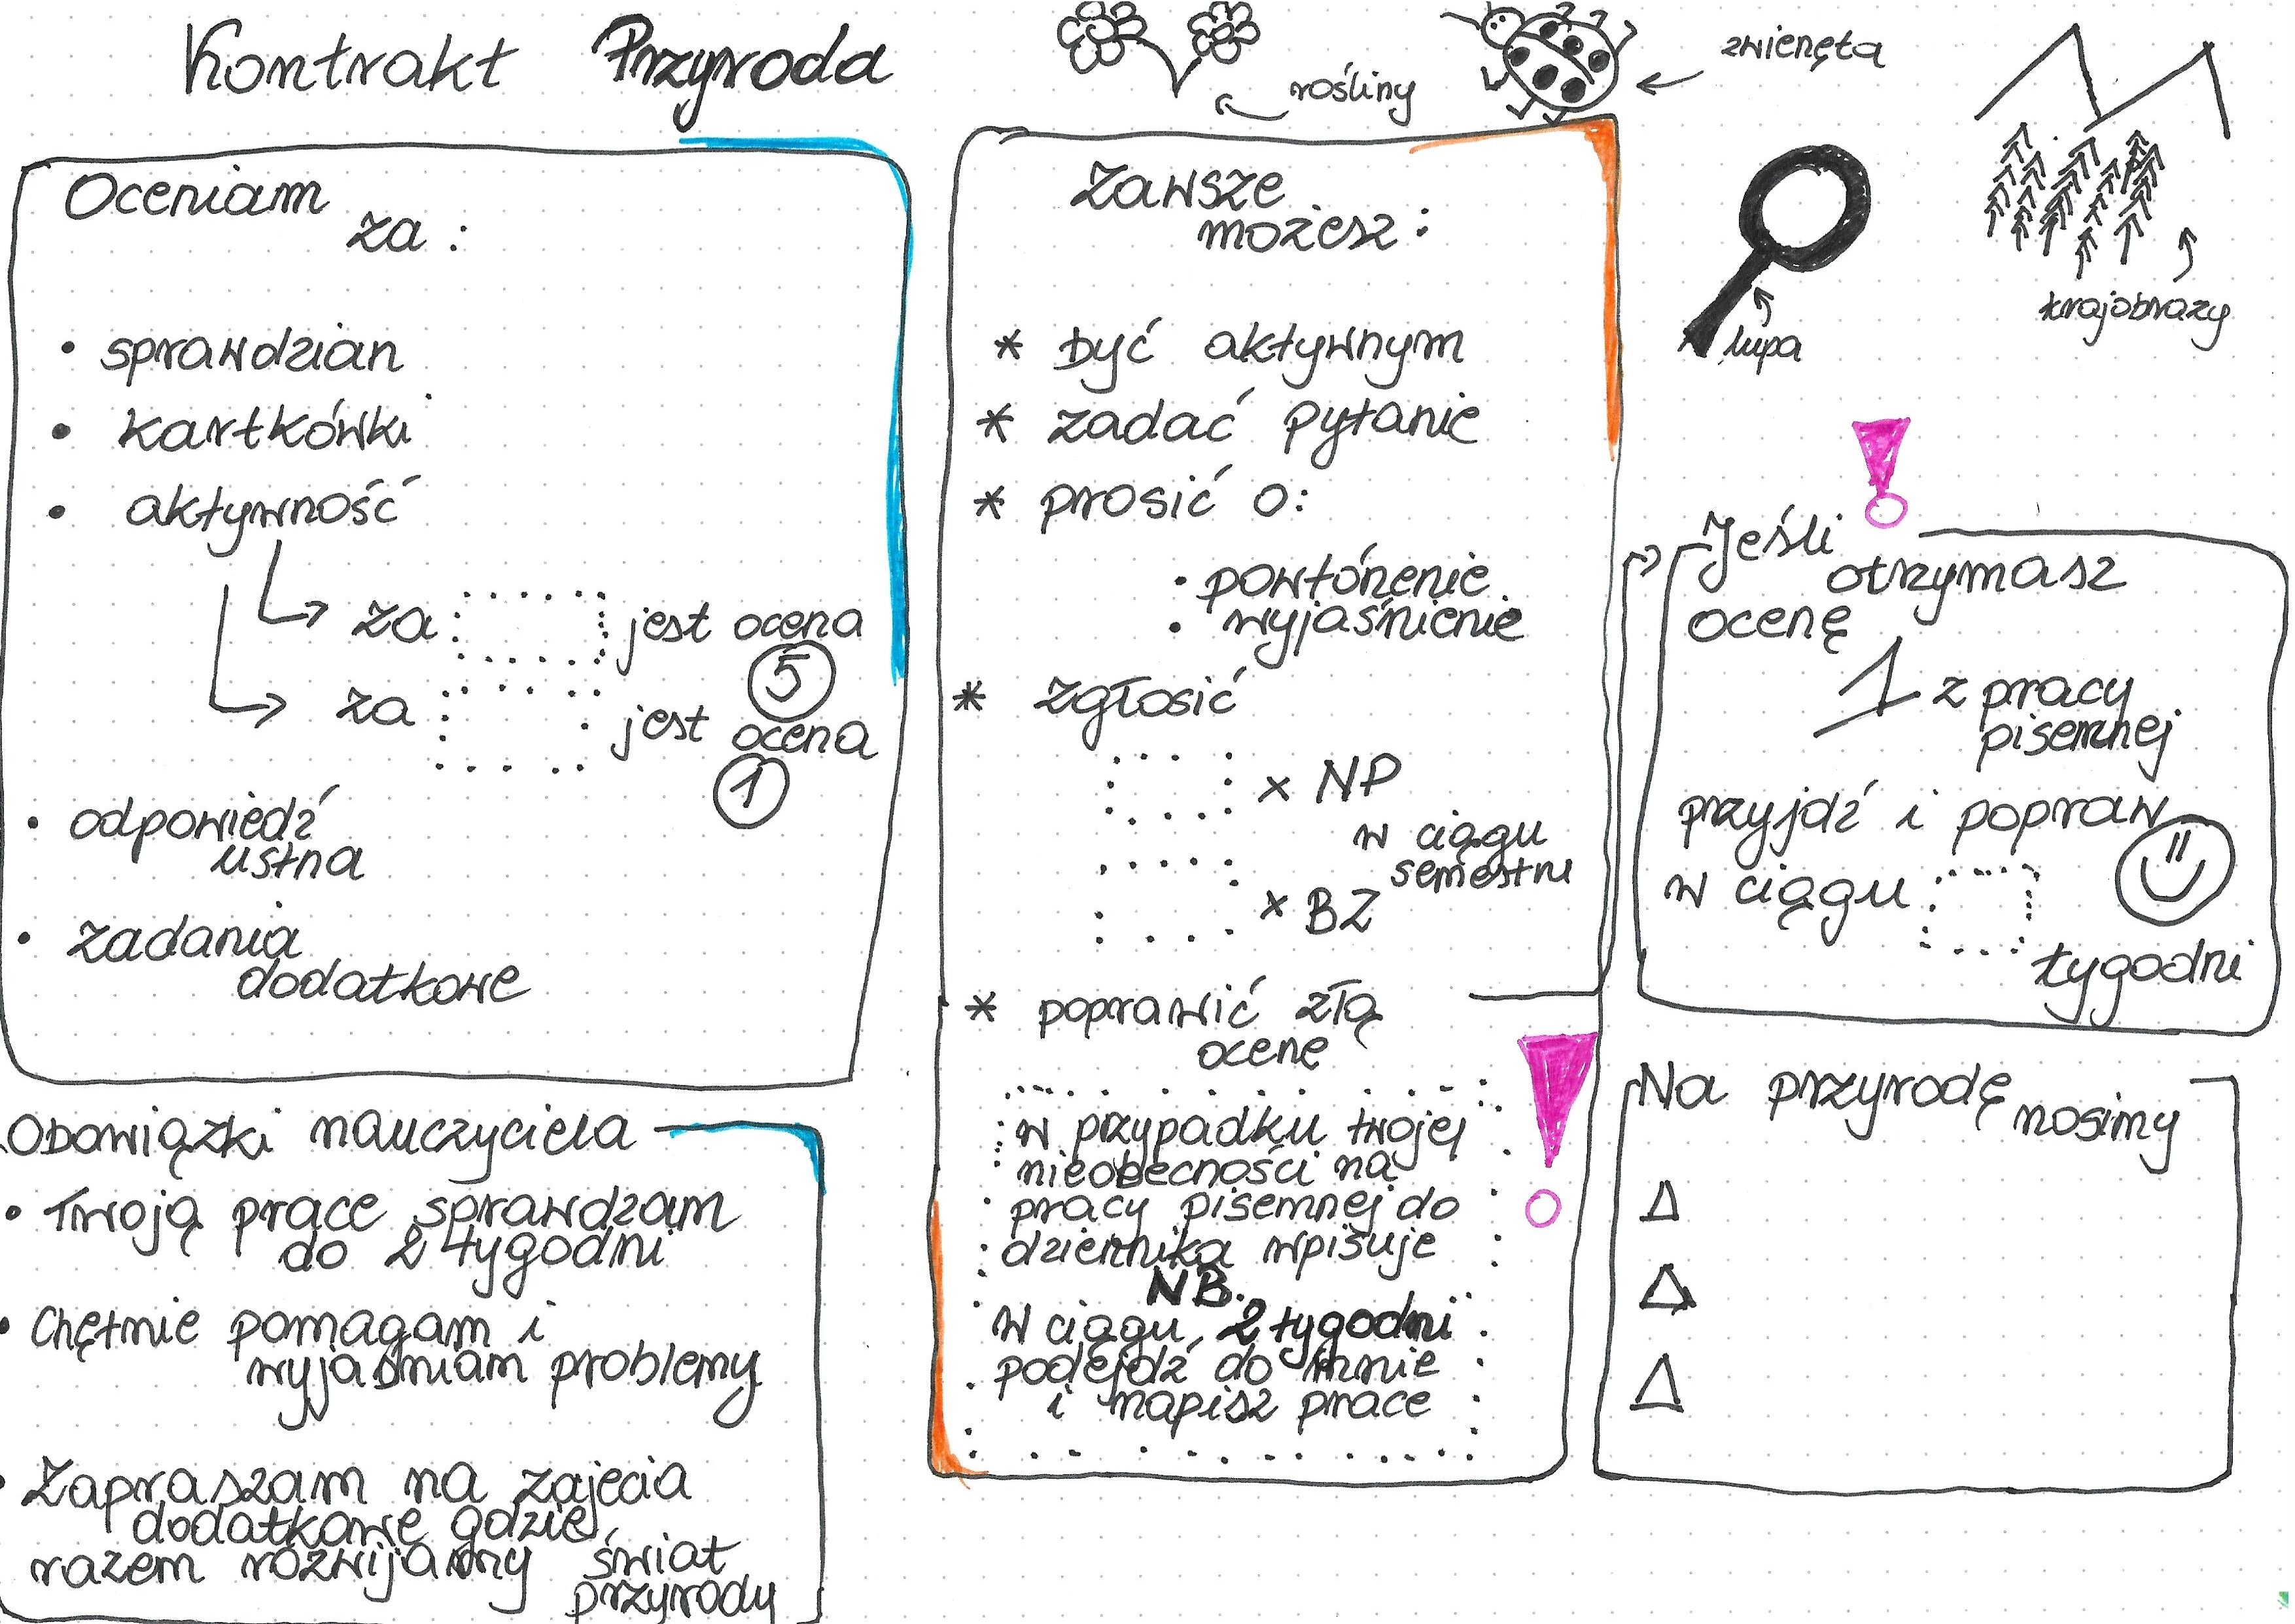 Kontrakt Przyroda
rośliny
zwierzęta
lupa
krajobrazy
Oceniam
za:
• sprawdzian
• kartkówki
• aktywność
za jest ocena
5
za jest ocena
1
• odpowiedź
ustna
• zadania
dodatkowe
Obowiązki nauczyciela
• Twoją pracę sprawdzam
do 2 tygodni
• Chętnie pomagam i
wyjaśniam problemy
• Zapraszam na zajęcia
dodatkowe gdzie
razem rozwijamy świat
przyrody
Zawsze
możesz:
* być aktywnym
* zadać pytanie
* prosić o:
• powtórzenie
• wyjaśnienie
* zgłosić
x NP
w ciągu
semestru
x BZ
* poprawić złą
ocenę
w przypadku twojej
nieobecności na
pracy pisemnej do
dziennika wpisuje
NB.
W ciągu 2 tygodni
podejdź do mnie
i napisz prace
Jeśli
otrzymasz
ocenę
1 z pracy
pisemnej
przyjdź i popraw
w ciągu
tygodni
Na przyrodę
nosimy